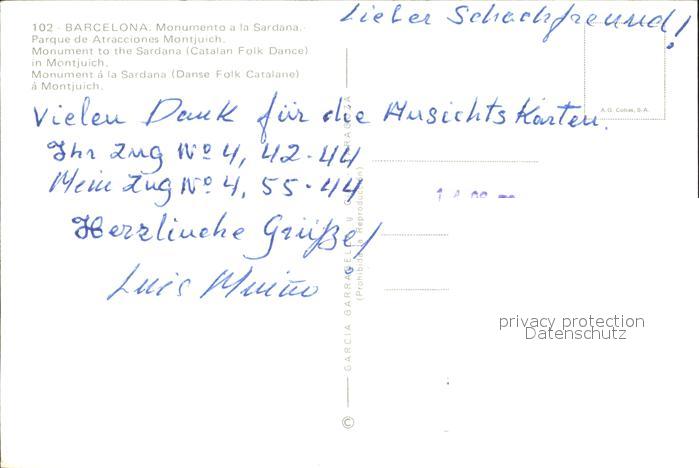 Lieber Schachfreund!
102 - BARCELONA. Monumento a la Sardana.
Parque de Atracciones Montjuich.
Monument to the Sardana (Catalan Folk Dance)
in Montjuich.
Monument á la Sardana (Danse Folk Catalane)
á Montjuich.
A.G. Cobas, S.A.
Vielen Dank für die Ansichtskarten.
Ihr Zug Nº 4, 42-44
Mein Zug Nº 4, 55-44
Herzlinche Grüße!
Luis Muiño
GARCIA GARRABELLA y C.
(Prohibida la Reproducción)
©
privacy protection
Datenschutz